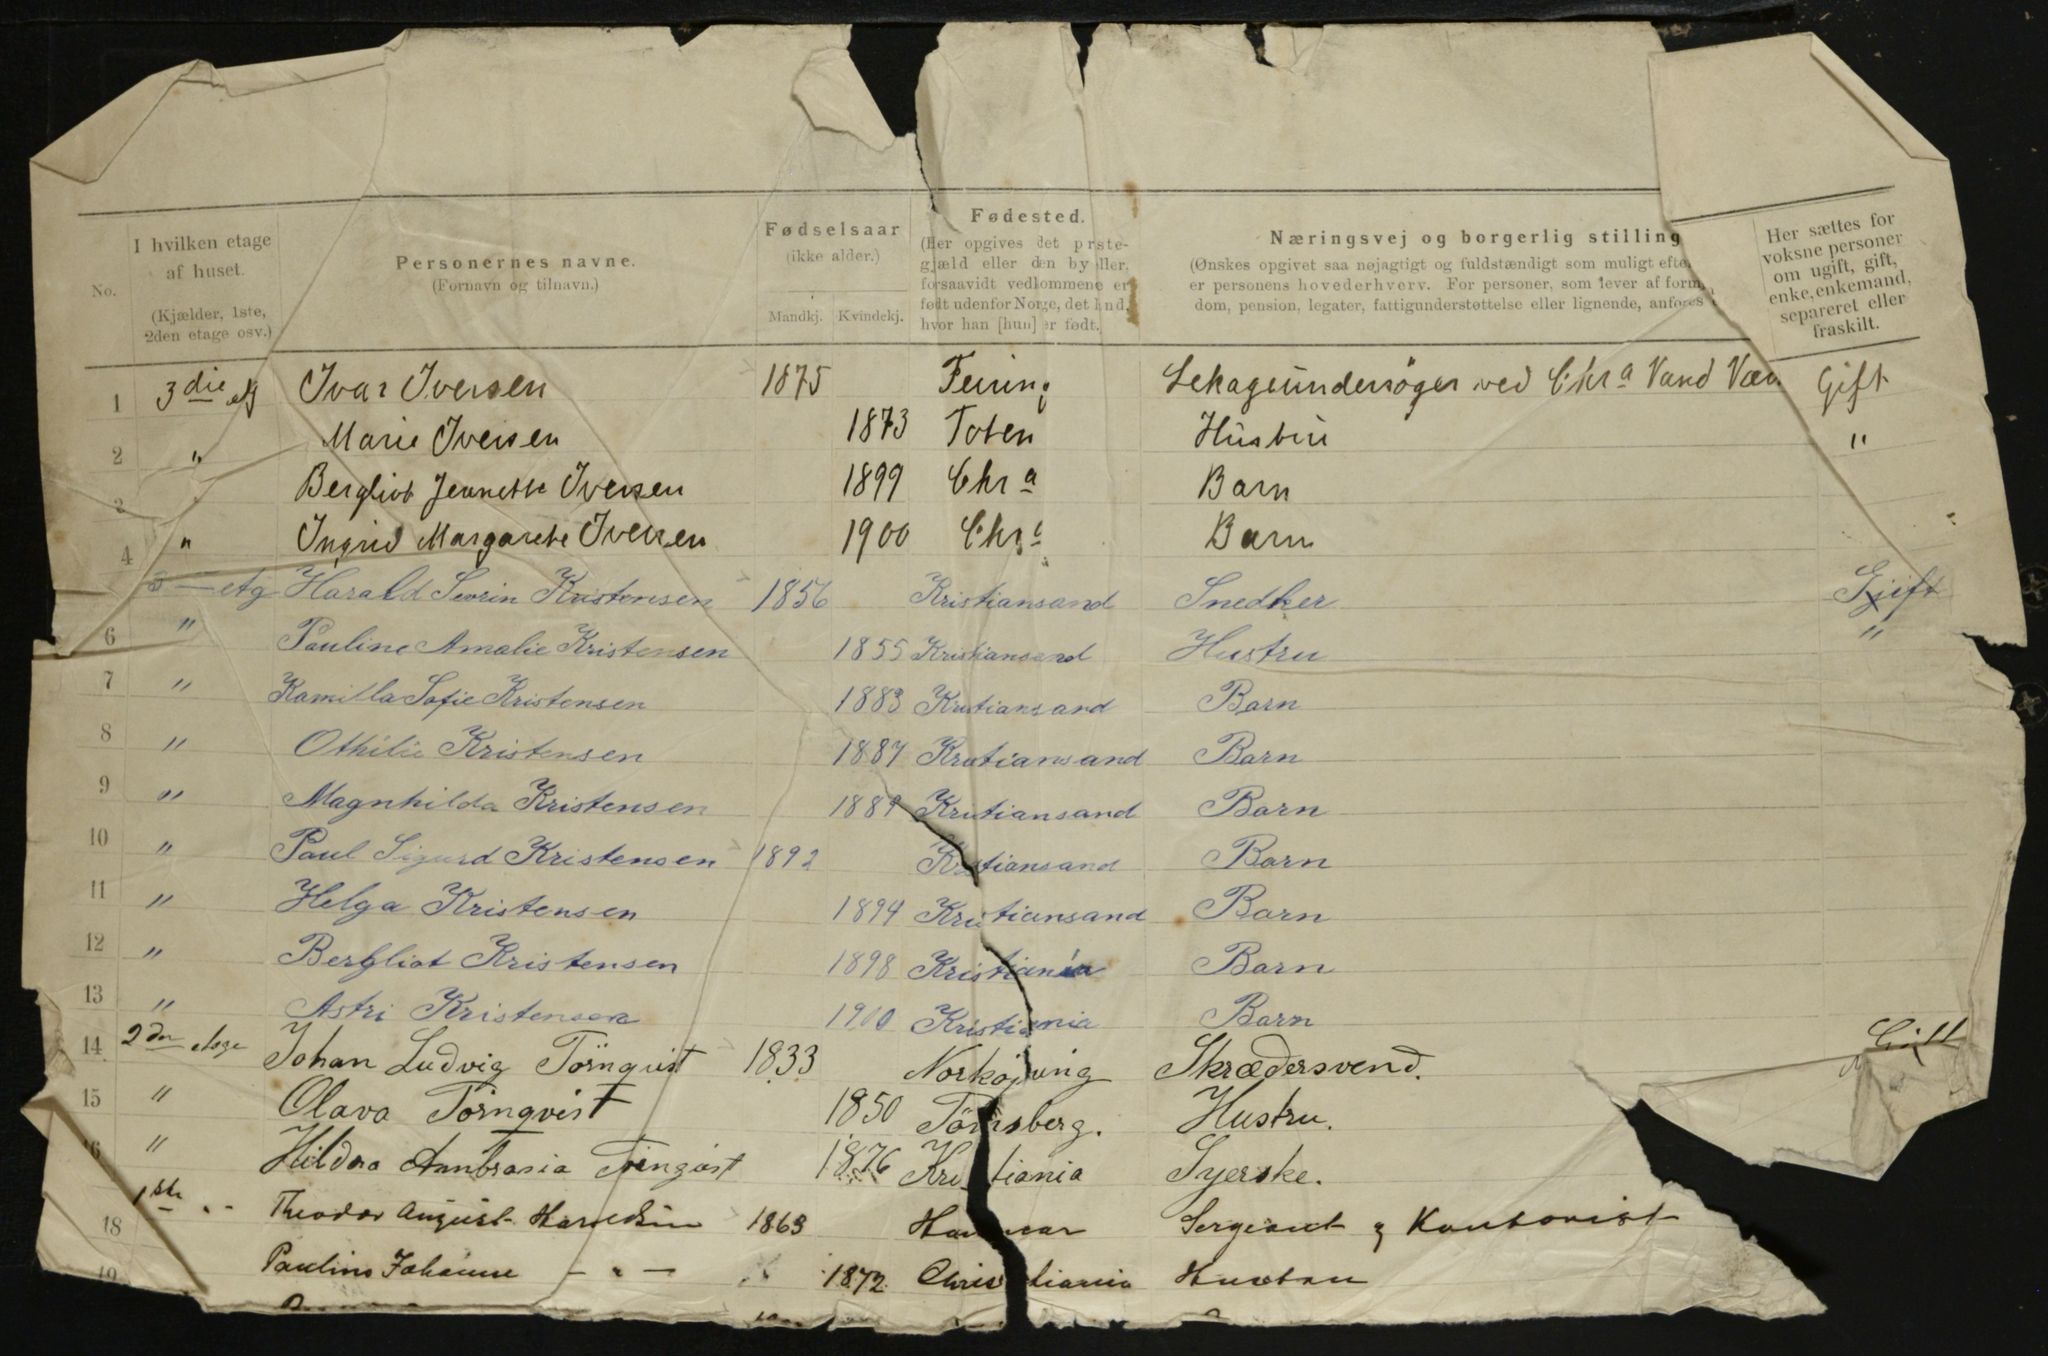 No.
I hvilken etage
af huset.
(Kjælder, 1ste,
2den etage osv.)
Personernes navne.
(Fornavn og tilnavn.)
Fødselsaar
(ikke alder.)
Mandkj. Kvindekj.
Fødested.
(Her opgives det prste-
gjæld eller den by eller,
forsaavidt vedkommende er
født udenfor Norge, det land,
hvor han [hun] er født.
Næringsvej og borgerlig stilling
(Ønskes opgivet saa nøjagtigt og fuldstændigt som muligt efte
er personens hovederhverv. For personer, som lever af form
dom, pension, legater, fattigunderstøttelse eller lignende, anføres
Her sættes for
voksne personer
om ugift, gift,
enke, enkemand,
separeret eller
fraskilt.
1 3die etg Ivar Iversen 1875 Feiring Lekageundersøger ved Chra Vand Væ Gift
2 " Marie Iversen 1873 Toten Hustru "
3 Bergliot Jeanette Iversen 1899 Chra Barn
4 " Ingrid Margarethe Iversen 1900 Chra Barn
3 — etg Harald Sevrin Kristensen 1856 Kristiansand Snedker Gjift
6 " Pauline Amalie Kristensen 1855 Kristiansand Hustru "
7 " Kamilla Sofie Kristensen 1883 Kristiansand Barn
8 " Othilie Kristensen 1887 Kristiansand Barn
9 " Magnhilda Kristensen 1889 Kristiansand Barn
10 " Paul Sigurd Kristensen 1892 Kristiansand Barn
11 " Helga Kristensen 1894 Kristiansand Barn
12 " Bergliot Kristensen 1898 Kristiania Barn
13 " Astri Kristensen 1900 Kristiania Barn
14 2den etage Johan Ludvig Törnqvist 1833 Norköping Skrædersvend. Gift
15 " Olava Törnqvist 1850 Tönsberg. Hustru.
6 " Hildra Ambrosia Törnqvist 1876 Kristiania Syerske.
1ste " Theodor August 1863 Hammar Sergeant og Kontorist
18
Pauline Johanne — " — 1872 Christiania Hustru
19